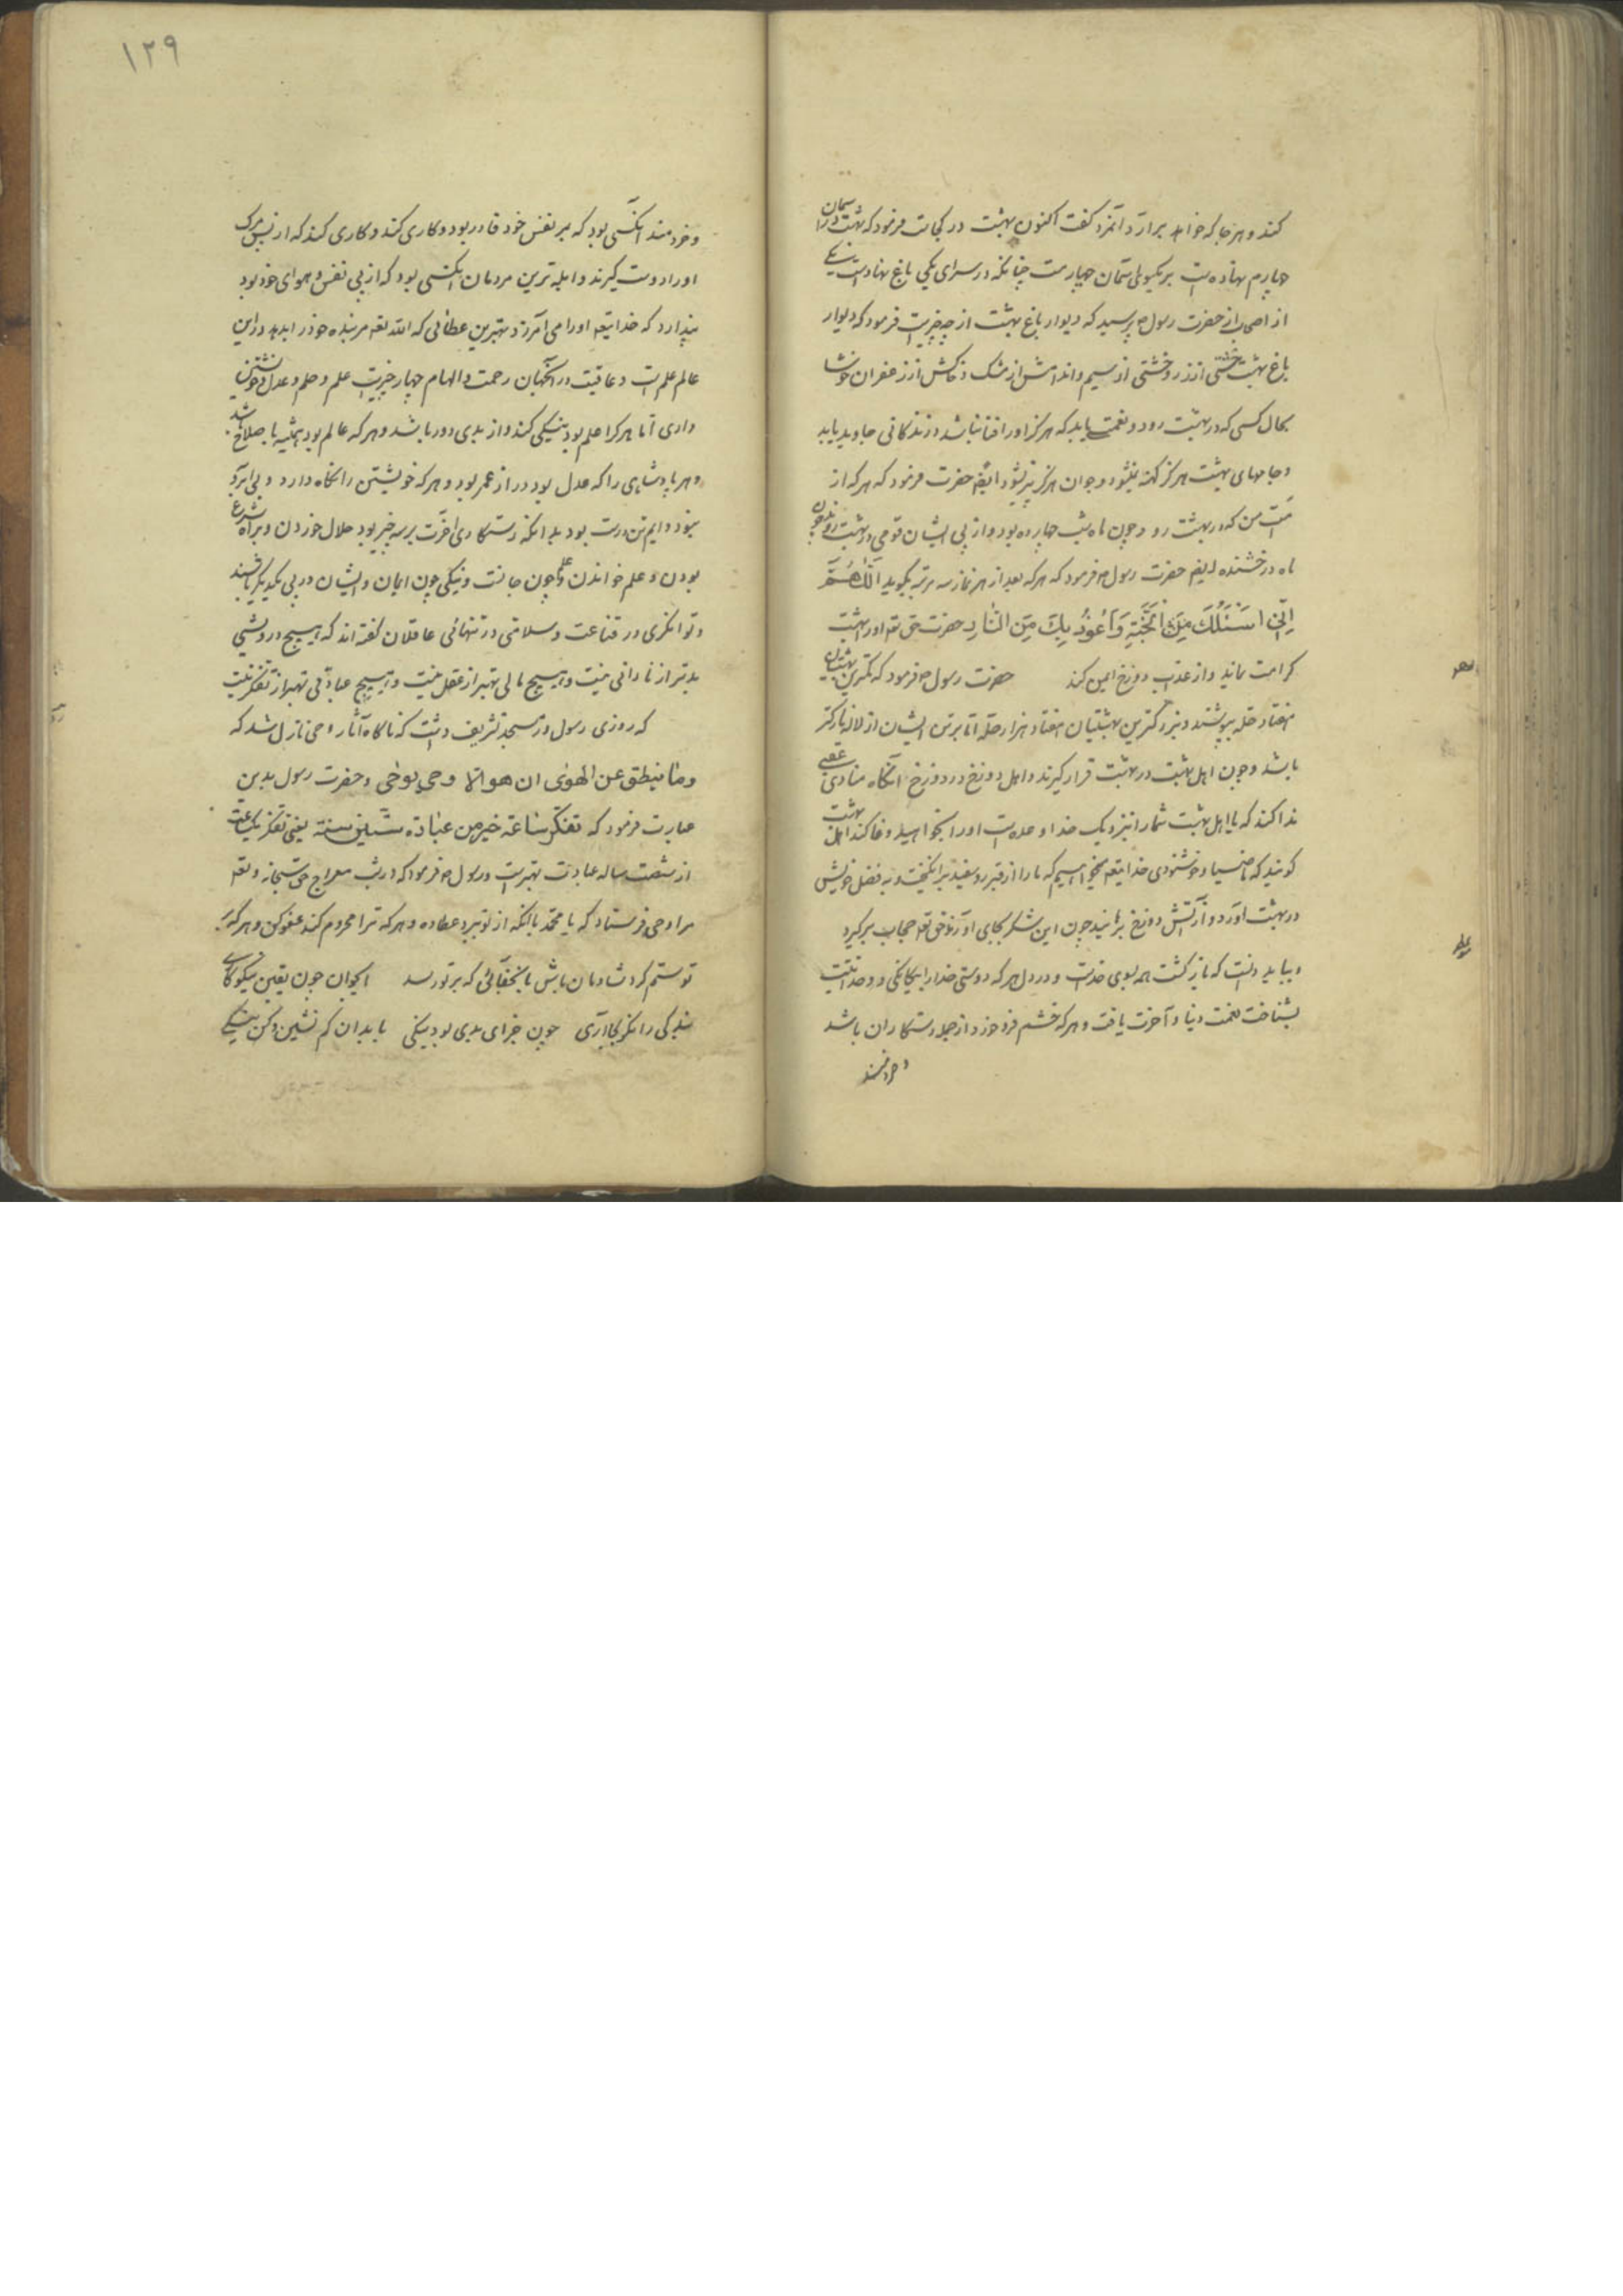 کند و هر جا که خواهد برارد آنمرد گفت اکنون بهشت در کجاست فرمود که بهشت در آسمان
چهارم نهاده است بر یکسوی آسمان چهارمست چنانکه در سرای یکی باغ نهادست یکی
از اصحاب از حضرت رسول ص پرسید که دیوار باغ بهشت از چه چیزیست فرمود که دیوار
باغ بهشت خشتی از زر و خشتی از سیم و اندامش از مشک و خاکش از زعفران خوشا
بحال کسی که در بهشت رود و نعمت یابد که هرگز او را فنا نباشد و زندکانی جاوید یابد
و جامهای بهشت هرگز کهنه نشود و جوان هرگز پیر نشود ایضا حضرت فرمود که هر که از
امت من که در بهشت رود چون ماه شب چهارده بود و از پی ایشان قومی در بهشت روند چون
ماه درخشنده ایضا حضرت رسول ص فرمود که هر که بعد از هر نماز سه مرتبه بگوید اللّٰهُمَّ
اِنّی اَسْئَلُکَ مِنَ الْجَنَّةِ وَ اَعُوذُ بِکَ مِنَ النّارِ حضرت حق تعه او را بهشت
کرامت نماید و از عذاب دوزخ ایمن کند حضرت رسول ص فرمود که کمترین بهشتیان
هفتاد حله بپوشند و بزرکترین بهشتیان هفتاد هزار حله اما برتن ایشان از لاله نازکتر
باشد و چون اهل بهشت در بهشت قرار گیرند و اهل دوزخ در دوزخ آنگاه منادی غیبی
ندا کند که یا اهل بهشت شما را نزدیک خدا وعده است او را بخواهید وفا کند اهل بهشت
گویند که ما ضیا و خوشنودی خدایتعه میخواهیم که ما را از قبر روسفید برانکیخت و به فضل خویش
در بهشت آورد و از آتش دوزخ برهانید چون این شکر بجای آورند حق تعه حجاب برگیرد
و بباید دانست که بازگشت همه بسوی خداست و در دل هر که دوستی خدا را بیکانکی و وحدانیت
بشناخت نعمت دنیا و آخرت یافت و هر که خشم فرو خورد از جمله رستکاران باشد
و خردمند
۱۲۹
و خردمند آنکسی بود که بر نفس خود قادر بود و کاری کند و کاری کند که از پس مرک
او را دوست گیرند و ابله ترین مردمان آنکسی بود که از پی نفس و هوای خود بود
پندارد که خدایتعه او را می آمرزد بهترین عطائی که الله تعه مر بنده خود را بدهد در این
عالم علم است و عاقبت در آنجهان رحمت و الهام چهار چیزیست علم و حلم و عدل و خویشتن
داری اما هر کرا علم بود نیکی کند و از بدی دور باشد و هر که عالم بود همیشه با صلاح باشد
و هر پادشاهی را که عدل بود دراز عمر بود و هر که خویشتن را نگاه دارد و بی آبرو
نبود و ایم تن درست بود بدانکه رستکاری آخرت بر سه چیز بود حلال خوردن و بر راه شرع
بودن و علم خواندن و علم چون جانست و نیکی چون ایمان و ایشان در پی یکدیگر باشند
و توانکری در قناعت و سلامتی در تنهائی عاقلان گفته اند که هیچ درویشی
بدتر از نادانی نیست و هیچ مالی بهتر از عقل نیست و هیچ عبادتی بهتر از تفکر نیست
که روزی رسول در مسجد تشریف داشت که ناگاه آثار وحی نازل شد که
و ما ینطق عن الهوی ان هو الا وحی یوحی و حضرت رسول بدین
عبارت فرمود که تفکر ساعة خیر من عبادة ستین سنة یعنی تفکر یکساعت
از شصت ساله عبادت بهتر است و رسول ص فرمود که در شب معراج حق سبحانه و تعه
مرا وحی فرستاد که یا محمد با آنکه از تو ببرد عطا ده و هر که ترا محروم کند عفو کن و هر که بر
تو ستم کرد شادمان باش با نحقیقائی که بر تو رسد ایجوان چون یقین نیکوکاری
بندکی را نگر بجا آری چون جزای بدی بود نیکی با بدان کم نشین و کن نیکی